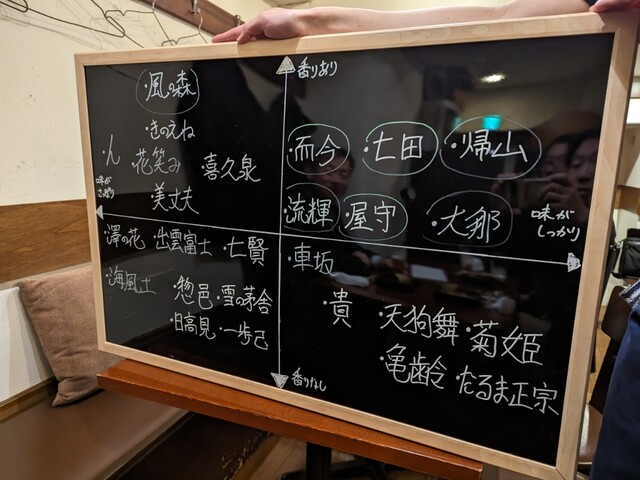 香りあり
・風の森
・きのえね
・ん
・花笑み
・喜久泉
・美丈夫
味が
さっぱり
・而今
・七田
・帰山
・流輝
・屋守
・大那
味が
しっかり
・澤の花
・出雲富士
・七賢
・海風土
・惣邑
・雪の茅舎
・日高見
・一歩己
・車坂
・貴
・天狗舞
・菊姫
・亀齢
・だるま正宗
香りなし